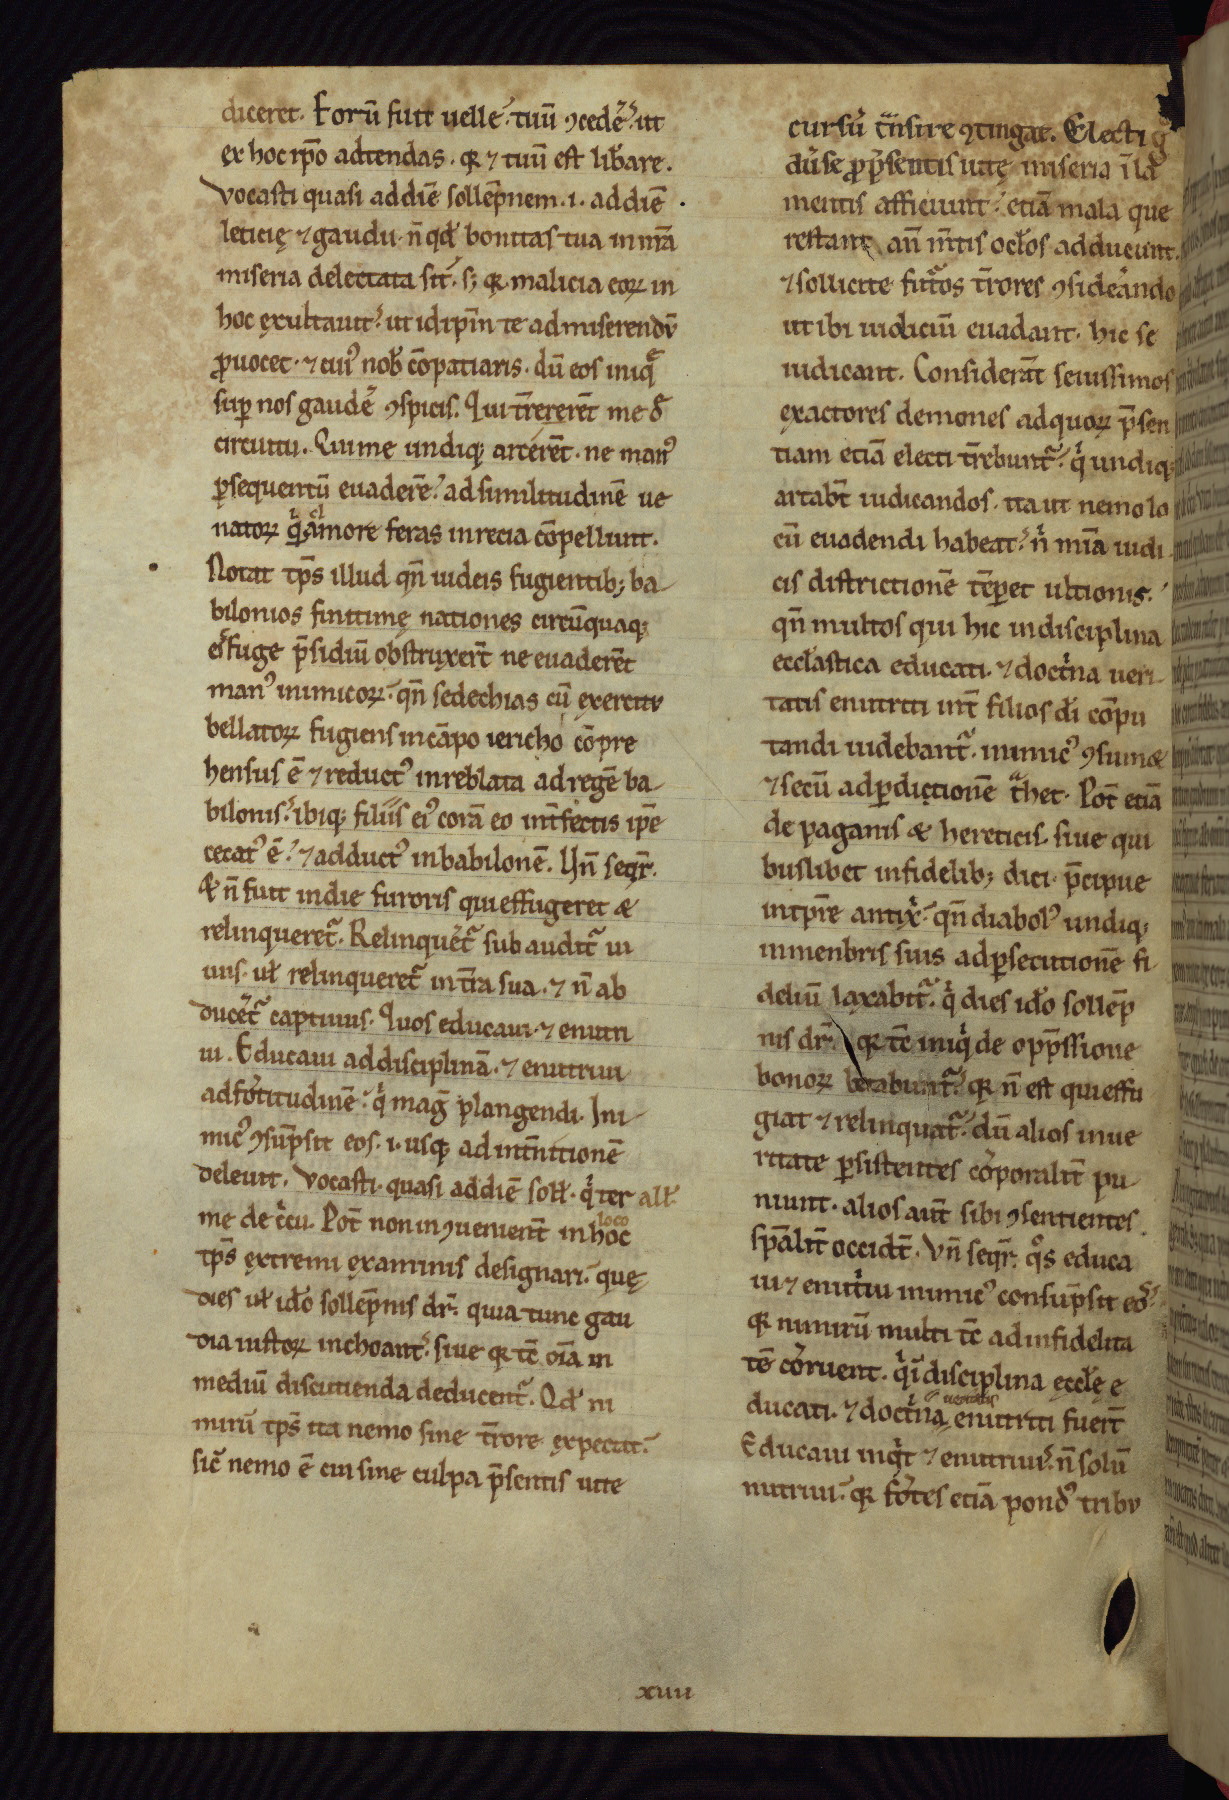 diceret. Eorū fuit uelle tuū ꝯcedē ut
ex hoc ip̄o adtendas. qr ⁊ tuū est lib̄are.
Vocasti quasi addiē sollēpnem .i. addiē
leticię ⁊ gaudii n̄ qđ bonitas tua in n̄ra
miseria delectata sit. sꝫ qr malicia eoꝝ in
hoc exultauit ut idip̄m te ad miserendū
ꝓuocet. ⁊ eius nob̄ cōpatiaris. dū eos iniq̄
suꝑ nos gaudē ꝯspicis. Qui t̄rererēt me đ
circuitu. Qui me undiqꝫ arcerēt. ne man᾽
ꝑsequentū euaderē ad similitudinē ue
natoꝝ q̄ amore feras in recia cōpellunt.
Notat tp̄s illud qn̄ iudeis fugientibꝫ ba
bilonios finitimę nationes circūquaqꝫ
effuge p̄sidiū obstruxert̄ ne euaderēt
man᾽ inimicoꝝ. qn̄ sedechias cū exercitu
bellatoꝝ fugiens in cāpo iericho cōpre
hensus ē ⁊ reduct᾽ in reblata ad regē ba
bilonis. ibiqꝫ filiis ei᾽ corā eo int̄fectis ip̄e
cecat᾽ ē ⁊ adduct᾽ in babilonē. Vn̄ seqr̄.
& n̄ fuit in die furoris qui effugeret &
relinqueret̄. Relinqueret̄ sub audit̄ ui
uus. ul̄ relinqueret̄ in t̄ra sua. ⁊ n̄ ab
duceret̄ captiuus. Quos educaui ⁊ enutri
ui. Educaui ad disciplinā. ⁊ enutriui
ad fortitudinē q̇ maḡ plangendi. Ini
mic᾽ ꝯsūpsit eos .i. usqꝫ ad int̄nitionē
deleuit. Vocasti quasi addiē soll̄. q̇ ter all̄
me de c̄cu. Pot̄ non inꝯuenient̄ in hoc loco
tp̄s extremi examinis designari quę
dies ul̄ ideo sollēpnis dr̄. quia tunc gau
dia iustoꝝ inchoant̄ siue qr tc̄ oīa in
mediū discutienda deducent̄. Qđ ni
mirū tp̄s ita nemo sine t̄rore expectat
sic̄ nemo ē cui sine culpa p̄sentis uite
cursū t̄nsire ꝯtingat. Electi q̄
dū se ꝓ p̄sentis uitę miseria ī la
mentis afficiunt etiā mala que
restant an̄ m̄tis oclos adducunt.
⁊ sollicite fut̄os t̄rores ꝯsiderando
ut ibi iudiciū euadant. hic se
iudicant. Considerāt seuissimos
exactores demones ad quoꝝ p̄sen
tiam etiā electi t̄rebunt̄ q̇ undiqꝫ
artabt̄ iudicandos. ita ut nemo lo
cū euadendi habeat n̄ mīa iudi
cis districtionē tēperet ultionis.
qn̄ multos qui hic in disciplina
eccl̄astica educati. ⁊ doct̄na ueri
tatis enutriti int̄ filios dī cōpu
tandi uidebant̄. inimic᾽ ꝯsumet
⁊ secū ad ꝑdictionē t̄het. Pot̄ etiā
de paganis & hereticis. siue qui
buslibet infidelibꝫ dici. p̄cipue
in tp̄re antix̄. qn̄ diabol᾽ undiqꝫ
in menbris suis ad ꝑsecutionē fi
deliū laxabit̄. q̇ dies ido sollēp
nis dr̄. qr tc̄ iniq̇ de opp̄ssione
bonoꝝ letabunt̄ qr n̄ est qui effu
giat ⁊ relinquat̄. dū alios in ue
ritate ꝑsistentes corporalit̄ pu
niunt. alios aut̄ sibi ꝯsentientes
sp̄alit̄ occidt̄. Vn̄ seqr̄. qͦs educa
ui ⁊ enut̄iui inimic᾽ consūpsit eos
qr nimirū multi tc̄ ad infidelita
tē corruent. q̇ ī disciplina eccl̄ę e
ducati. ⁊ doct̄na ueritatis enutriti fuert̄
Educaui inq̇t ⁊ enutriui. n̄ solū
nutriui. qr fortes etiā pond᾽ tribu
xiiii